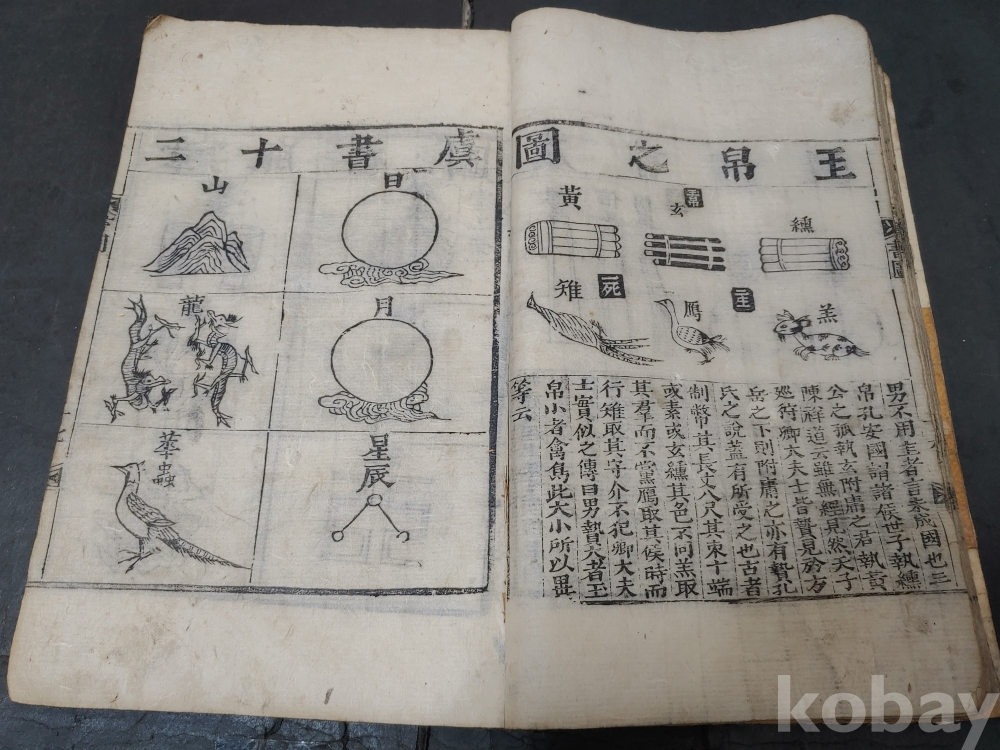 王帛之圖
纁
玄
黃
羔
二生
鴈
一死
雉
男不用圭者言未成國也三
帛孔安國謂諸侯世子執纁
公之孤執玄附庸之君執黃
陳祥道云雖無經見然天子
廵狩卿大夫士皆贄見於方
岳之下則附庸之亦有贄孔
氏之說蓋有所受之也古者
制幣其長丈八尺其束十端
或素或玄纁其色不同羔取
其羣而不黨鴈取其候時而
行雉取其守介不犯卿大夫
士實似之傳曰男贄大者玉
帛小者禽鳥此大小所以異
等云
虞書十二
日
月
星辰
山
龍
華蟲
kobay